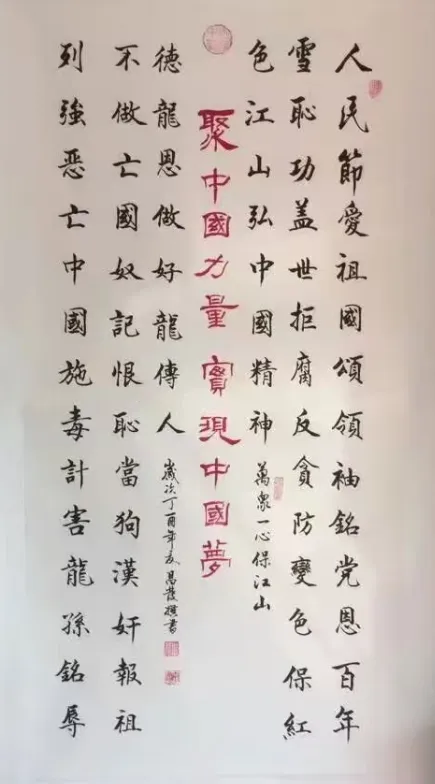 人民節愛祖國頌領袖銘党恩百年
雪恥功盖世拒腐反貪防變色保紅
色江山弘中國精神
萬衆一心保江山
列強惡亡中國施毒計害龍孫銘辱
不做亡國奴記恨恥當狗漢奸報祖
德龍恩做好龍傳人
歲次丁酉年撰書
聚中國力量 實現中國夢